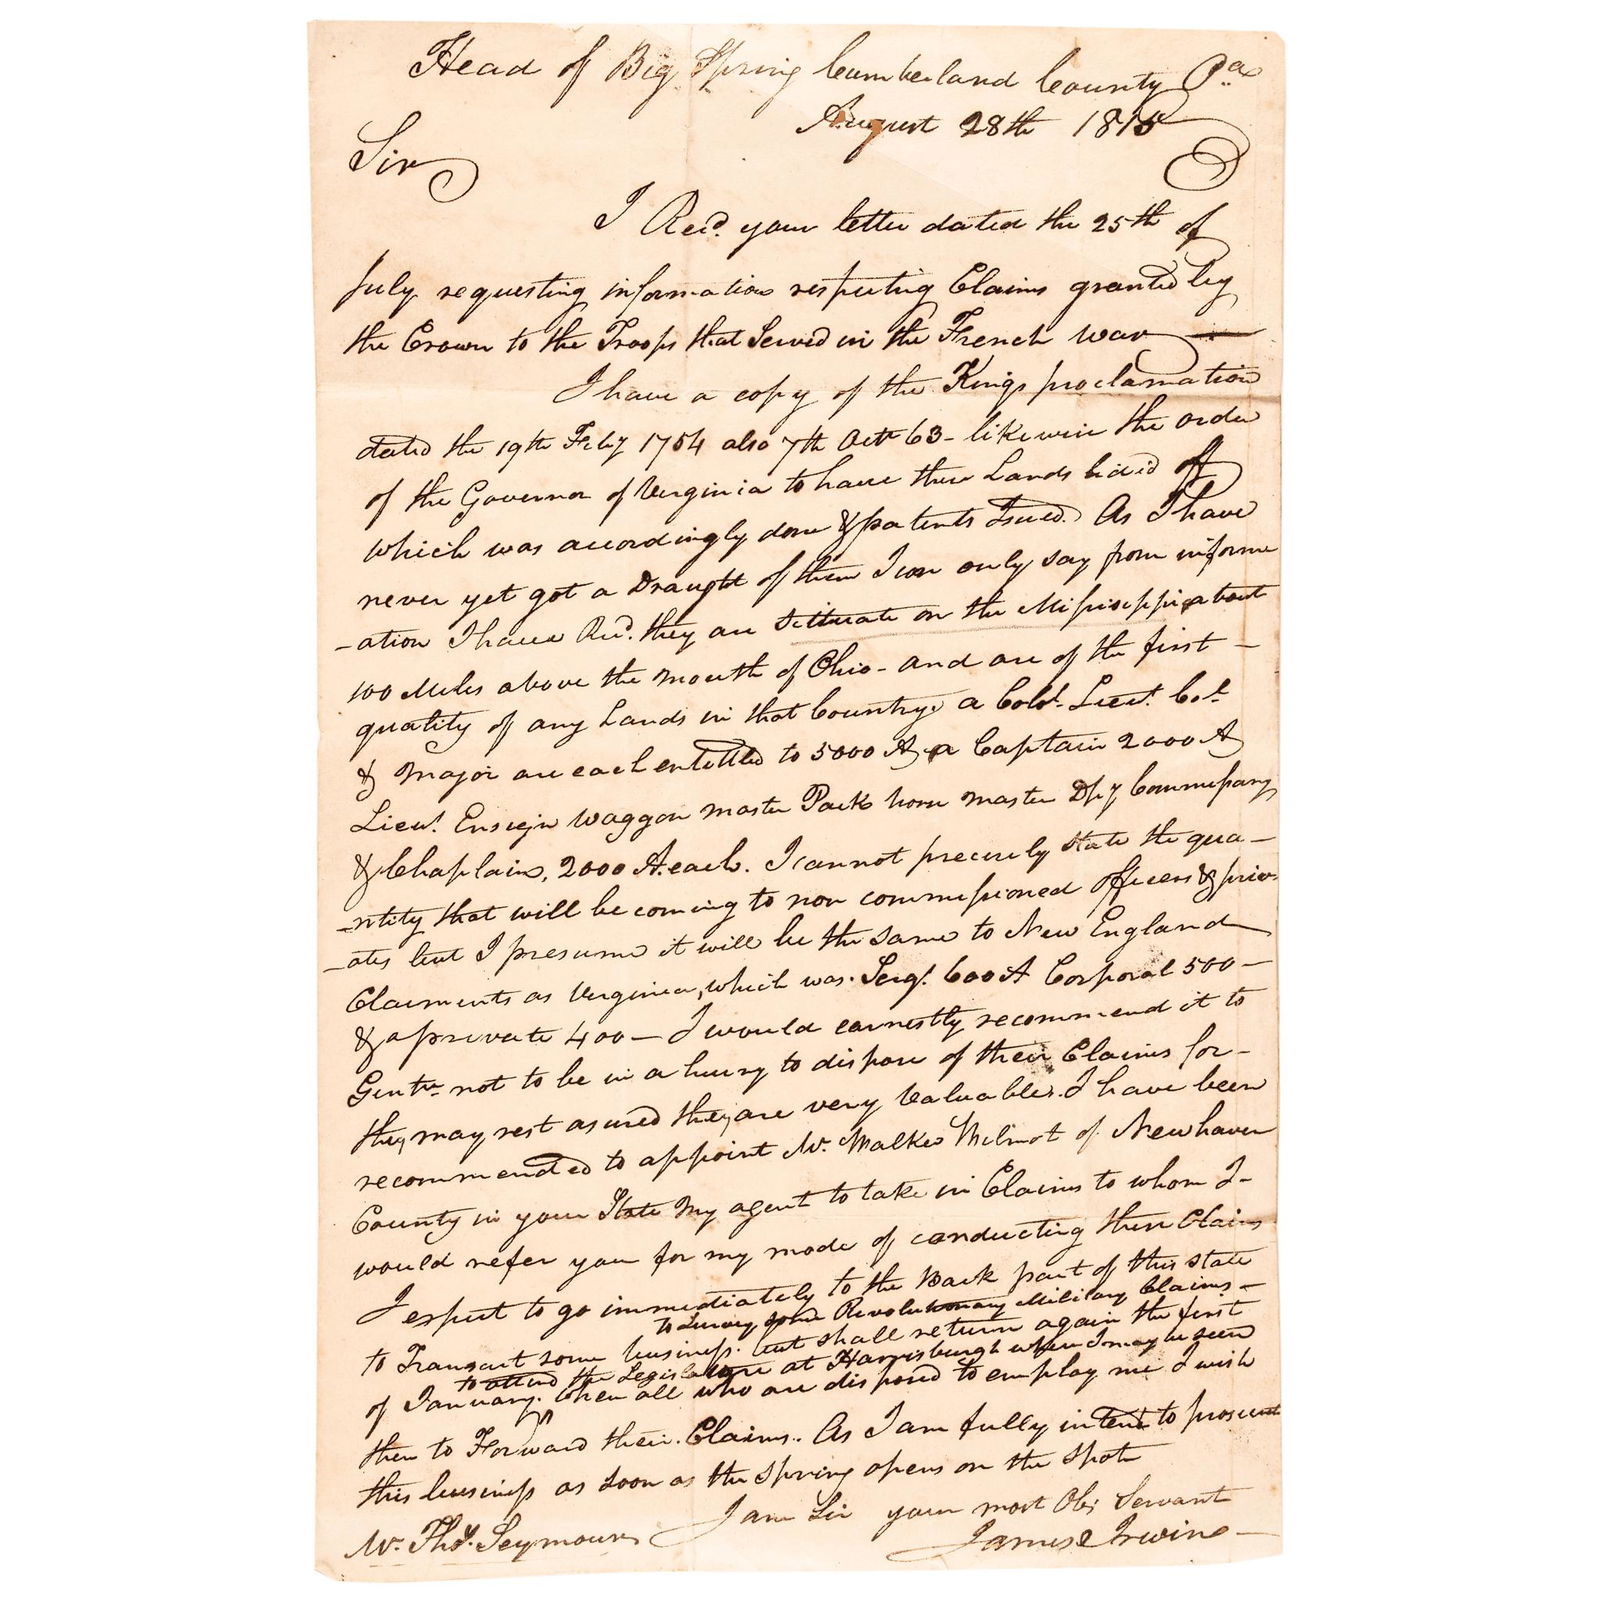 Head of Big Spring Cumberland County Pa
August 28th 1815
Sir
I Recd. your letter dated the 25th of
July requesting information respecting Claims granted by
the Crown to the Troops that Served in the French war —
I have a copy of the Kings proclamation
dated the 19th Feby 1754 also 7th Octr 63 - likewise the order
of the Governor of Virginia to have these Lands laid off
which was accordingly done & patents Isued. As I have
never yet got a Draught of them I can only say from inform
-ation I have Recd. they are Situate on the Missisippi about
100 Miles above the mouth of Ohio - and are of the first —
quality of any Lands in that Country. a Colol. Lieut. Col.
& Major are each entitled to 5000 A, a Captain 2000 A
Lieut. Ensign waggon master Pack horse master Dpy Commissary
& Chaplain, 2000 A. each. I cannot precisely state the qua —
-ntity that will be coming to non commissioned officers & priv-
-ates but I presume it will be the same to New England
Claiments as Virginia, which was Sergt. 600 A Corporal 500 —
& a private 400 — I would earnestly recommend it to
Gentn. not to be in a hurry to dispose of their Claims for —
they may rest asured they are very Valuable. I have been
recommended to appoint Mr. Walker Wilmot of Newhaven
County in your State My agent to take in Claims to whom I -
would refer you for my mode of conducting these Claims
I expect to go immediately to the Back part of this state
to Survey some Revolutionary Military Claims —
to Transact some business. but shall return again the first
to attend the Legislature at Harrisburgh when I may be seen
of January. When all who are disposed to employ me I wish
then to Forward their Claims. As I am fully intent to prosecute
this business as soon as the Spring opens on the Spot
I am Sir your most Obt Servant
Mr. Thos. Seymour James Irvine —